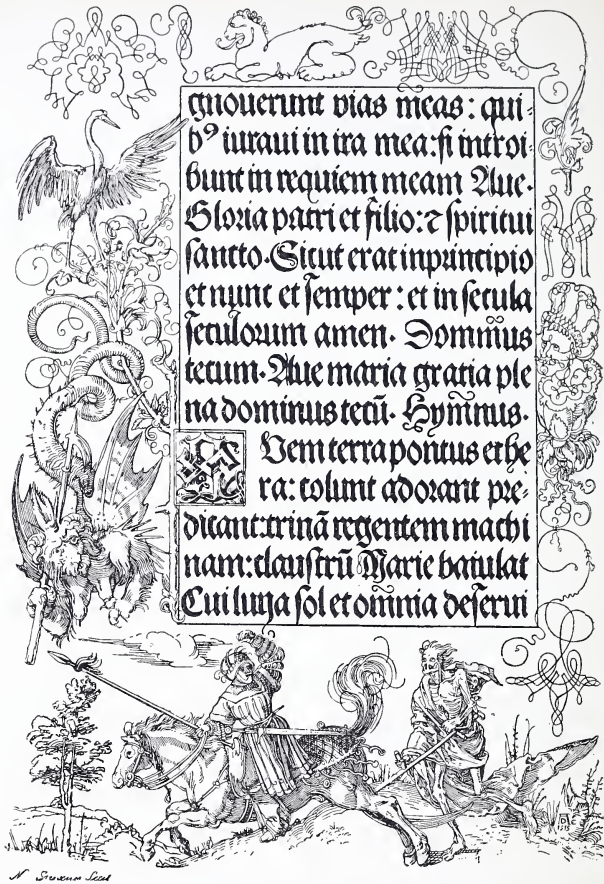 gnouerunt vias meas: qui⸗
bꝰ iuraui in ira mea: si introi⸗
bunt in requiem meam Aue.
Gloria patri et filio: ⁊ spiritui
sancto. Sicut erat in principio
et nunc et semper: et in secula
seculorum amen. Dominus
tecum. Aue maria gratia ple
na dominus tecū. Hymnus.
Quem terra pontus ethe
ra: colunt adorant pre⸗
dicant: trinā regentem machi
nam: claustrū Marie baiulat
Cui luna sol et omnia deserui